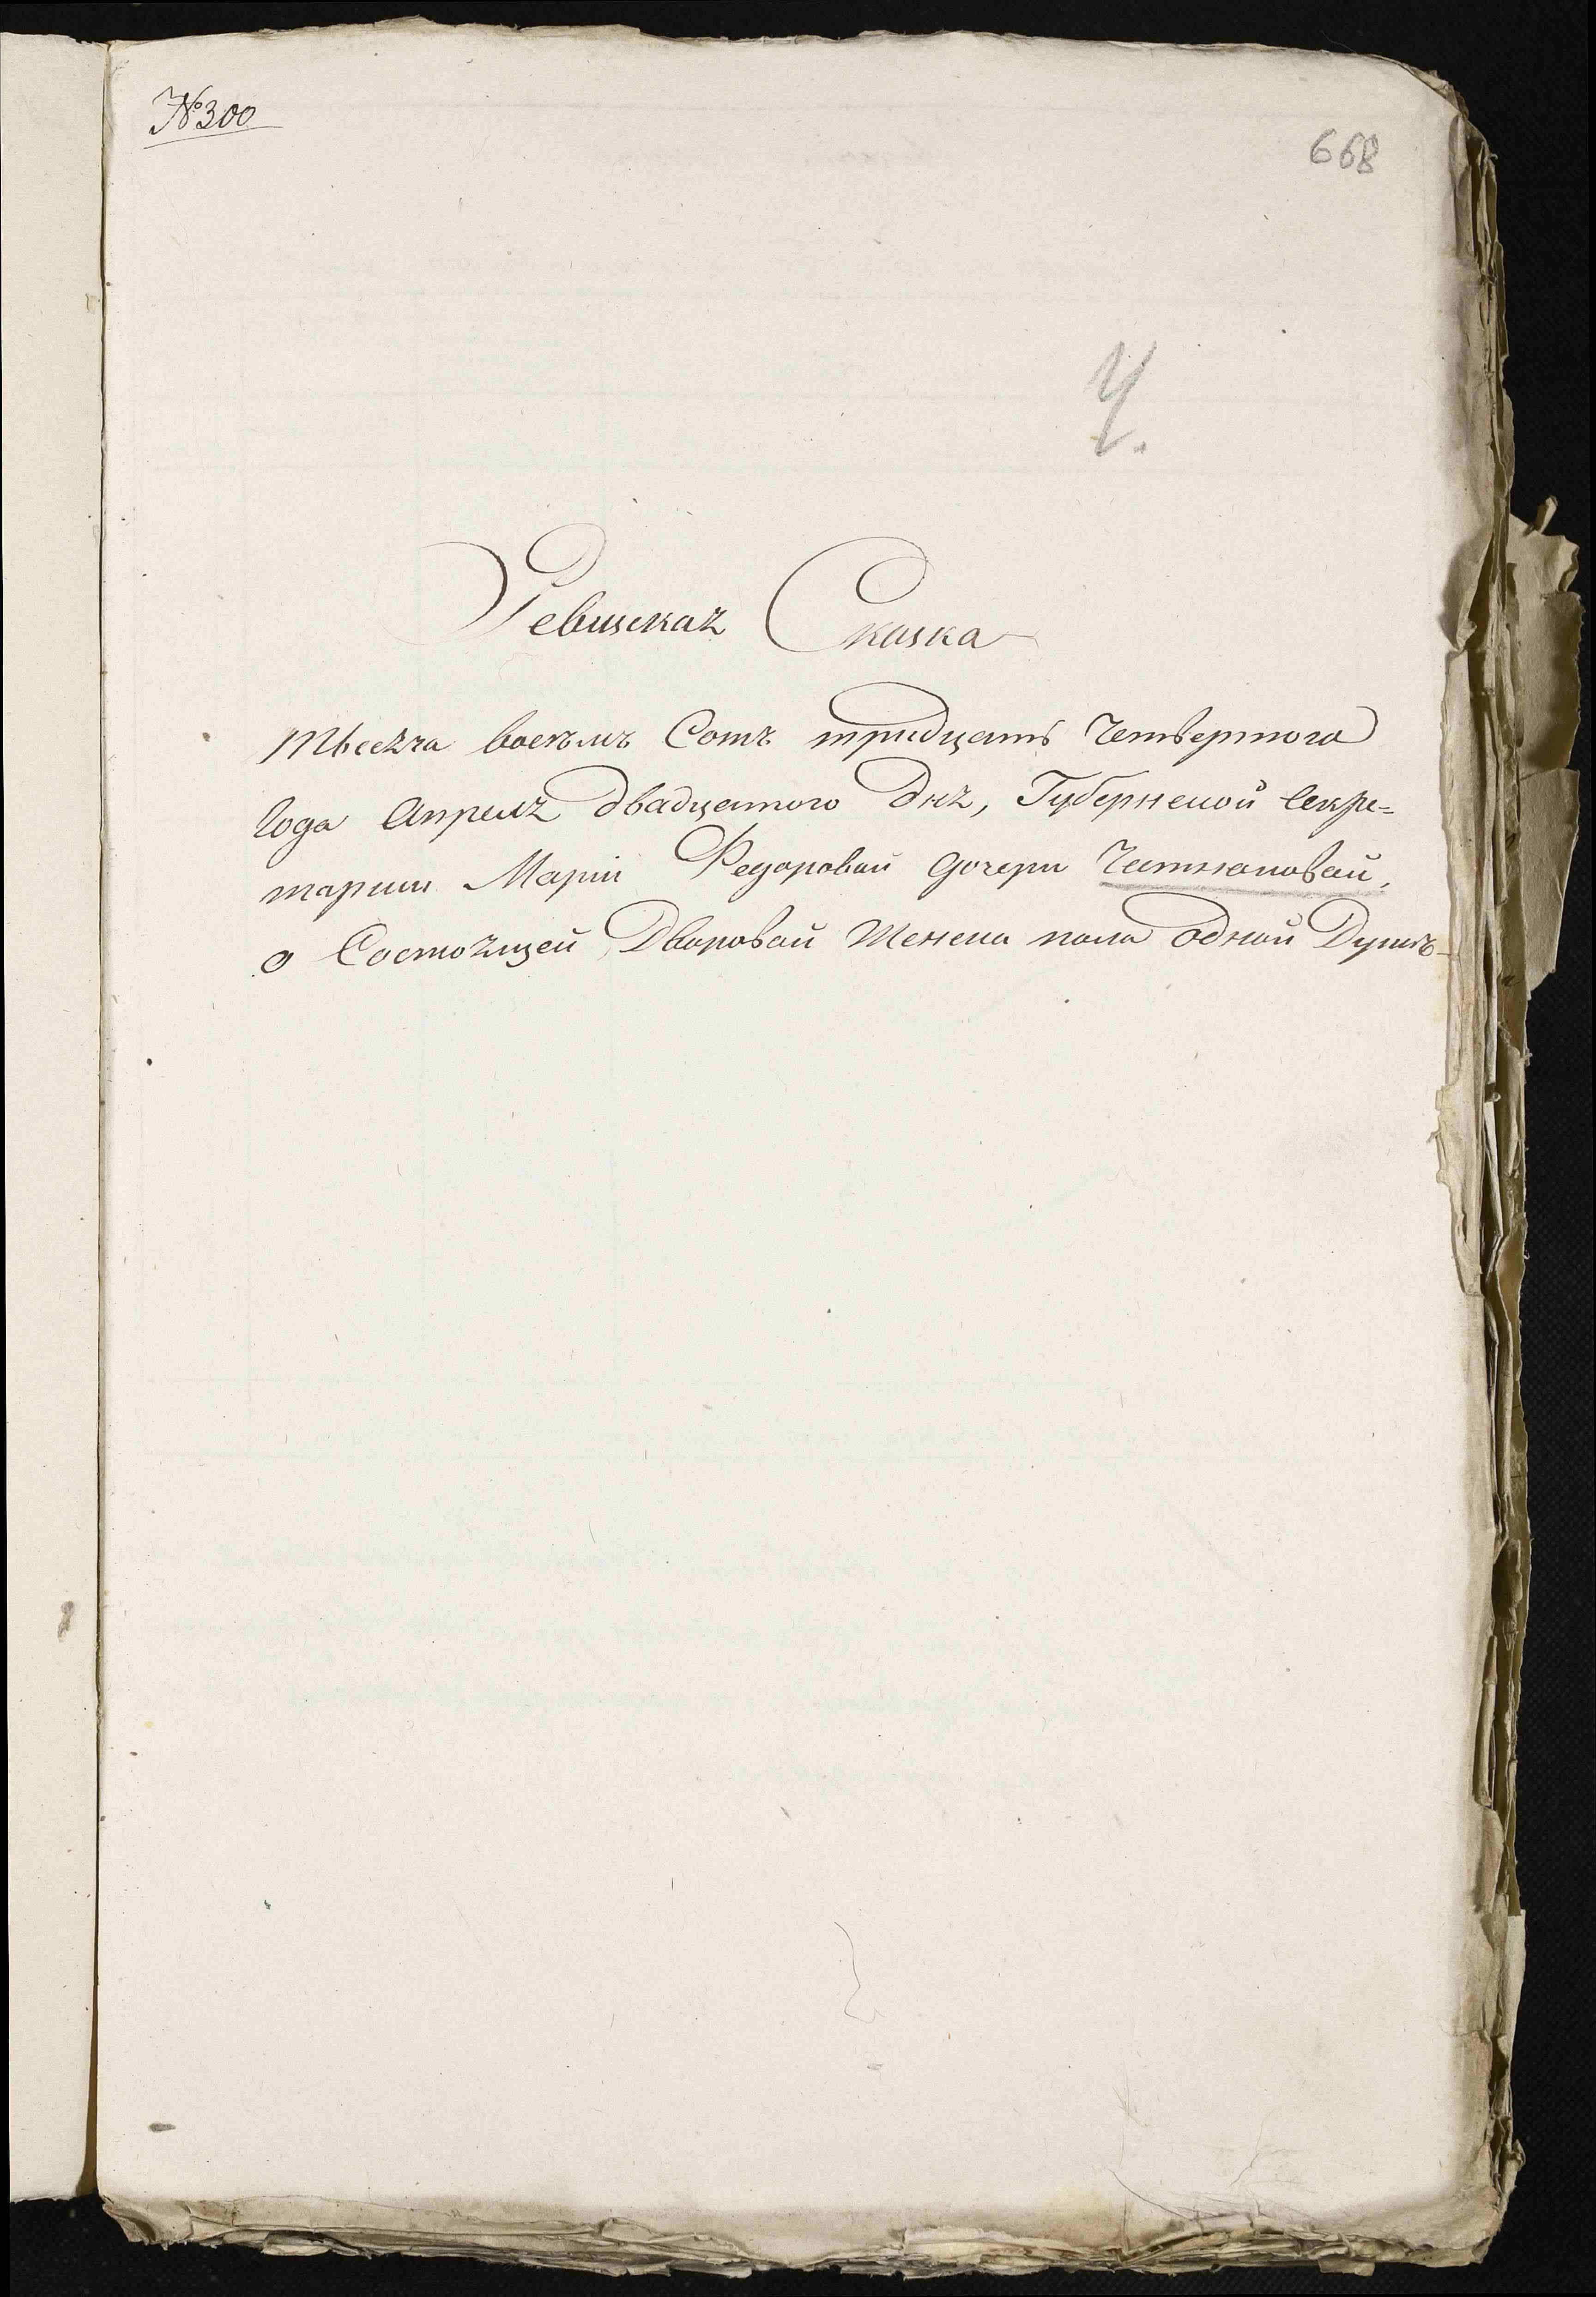 № 300
668
Ч.
Ревизская Сказка
тысяча восемъ Сотъ тридцать Четвертого
Года Апреля двадцатого дня, Губернской Секре=
тарши Маріи Федоровой дочери
о Состоящей Дворовой Женска пола одной Душѣ